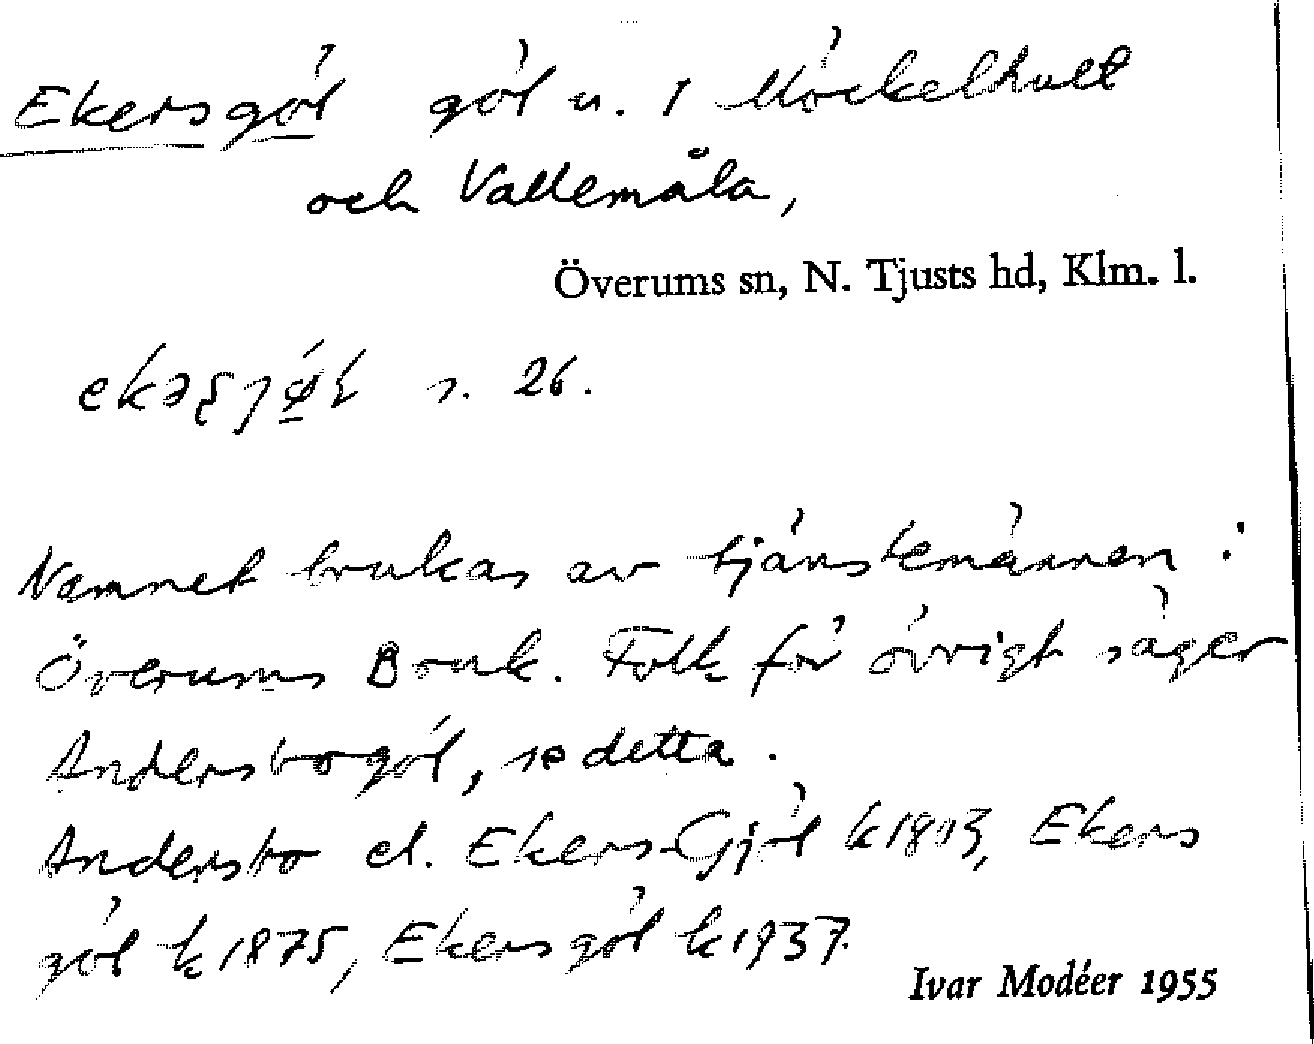 Ekersgöl göl u. 1 Möckelhult
och Vallemåla,
Överums sn, N. Tjusts hd, Klm. l.
s. 26.
Namnet brukas av tjänstemännen i
Överums Bruk. Folk för övrigt säger
Andersbogöl, se detta.
Andersbo el. Ekers-Gjöl k 1813, Ekers
göl k 1875, Ekersgöl k 1937.
Ivar Modéer 1955